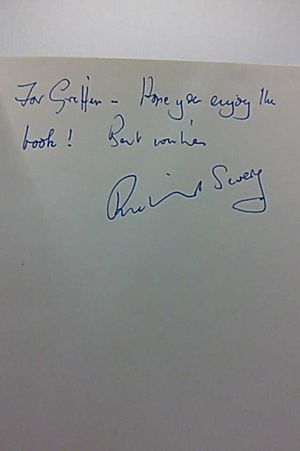 For Griffin - Hope you enjoy the
book! Best wishes